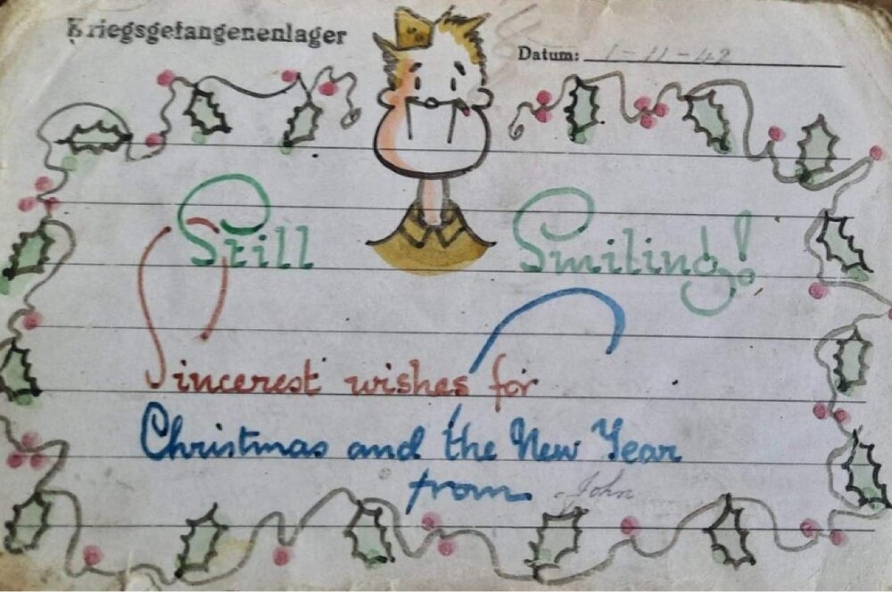 Kriegsgefangenenlager
Datum: 1-11-42
Still Smiling!
Sincerest wishes for
Christmas and the New Year
from John